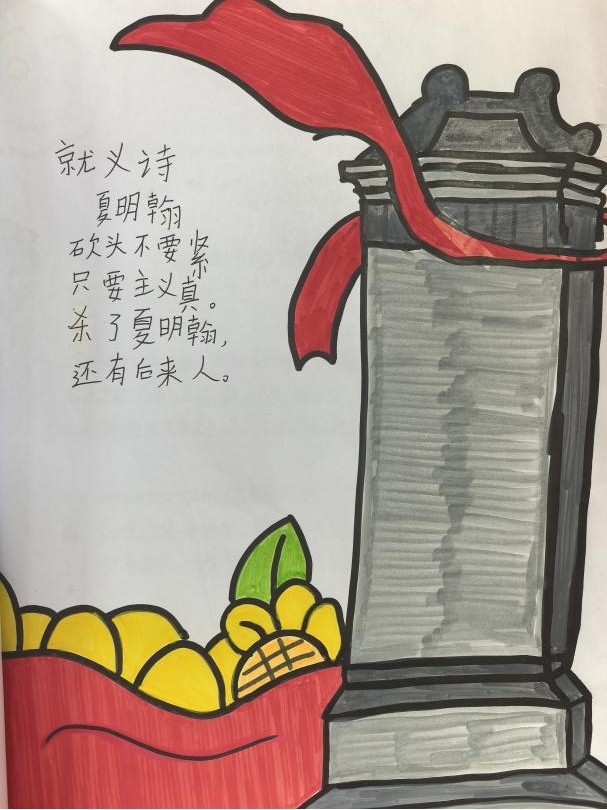 就义诗
夏明翰
砍头不要紧
只要主义真。
杀了夏明翰,
还有后来人。